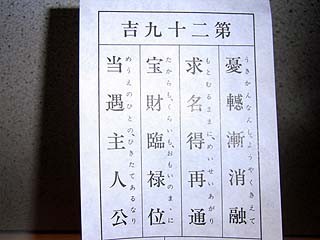 第二十九吉
憂轗漸消融
うきかんなんしも、ようやくきえて
求名得再通
もとむるまゝに、めいせいあがり
宝財臨禄位
たからも、くらいも、おもいのまゝに
当遇主人公
めうえのひとの、ひきたてあるなり